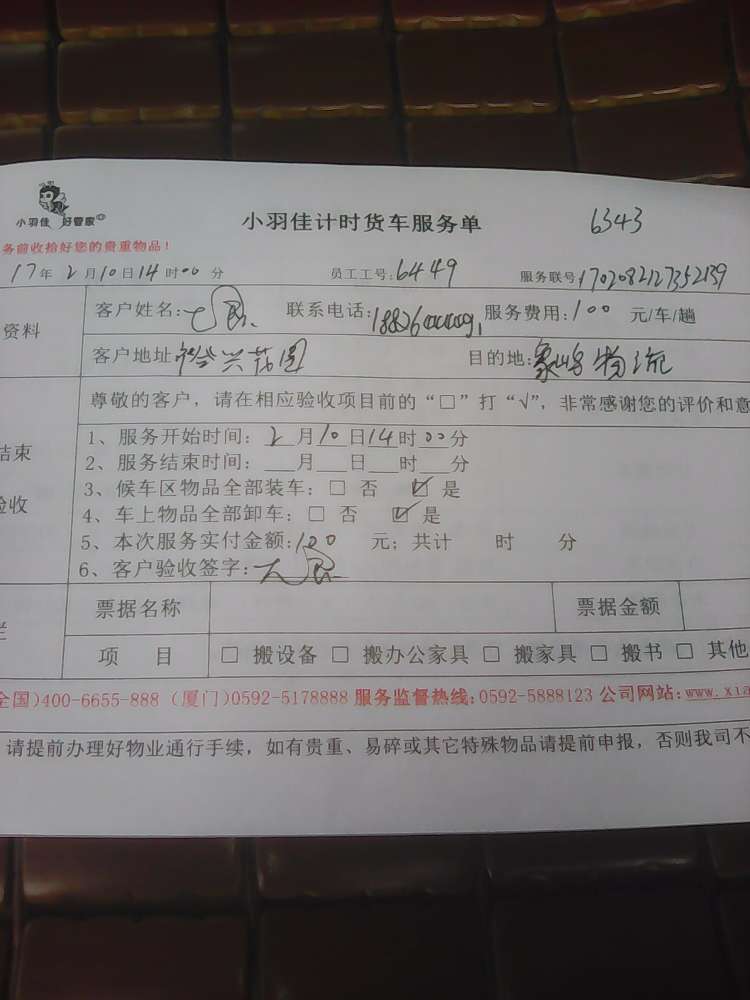 小羽佳 好管家
小羽佳计时货车服务单 6343
务前收拾好您的贵重物品！
17年2月10日14时00分 员工工号：6449 服务联号 1702082127352139
资料
客户姓名： 联系电话： 服务费用：100 元/车/趟
客户地址 兴花园 目的地：象屿物流
尊敬的客户，请在相应验收项目前的“□”打“√”，非常感谢您的评价和意
结束
验收
1、服务开始时间：2月10日14时00分
2、服务结束时间：___月___日___时___分
3、候车区物品全部装车：□ 否 ☑ 是
4、车上物品全部卸车：□ 否 ☑ 是
5、本次服务实付金额：100 元；共计 时 分
6、客户验收签字：
票据名称 票据金额
项 目 □ 搬设备 □ 搬办公家具 □ 搬家具 □ 搬书 □ 其他
全国)400-6655-888 (厦门)0592-5178888 服务监督热线：0592-5888123 公司网站：www.xia
请提前办理好物业通行手续，如有贵重、易碎或其它特殊物品请提前申报，否则我司不